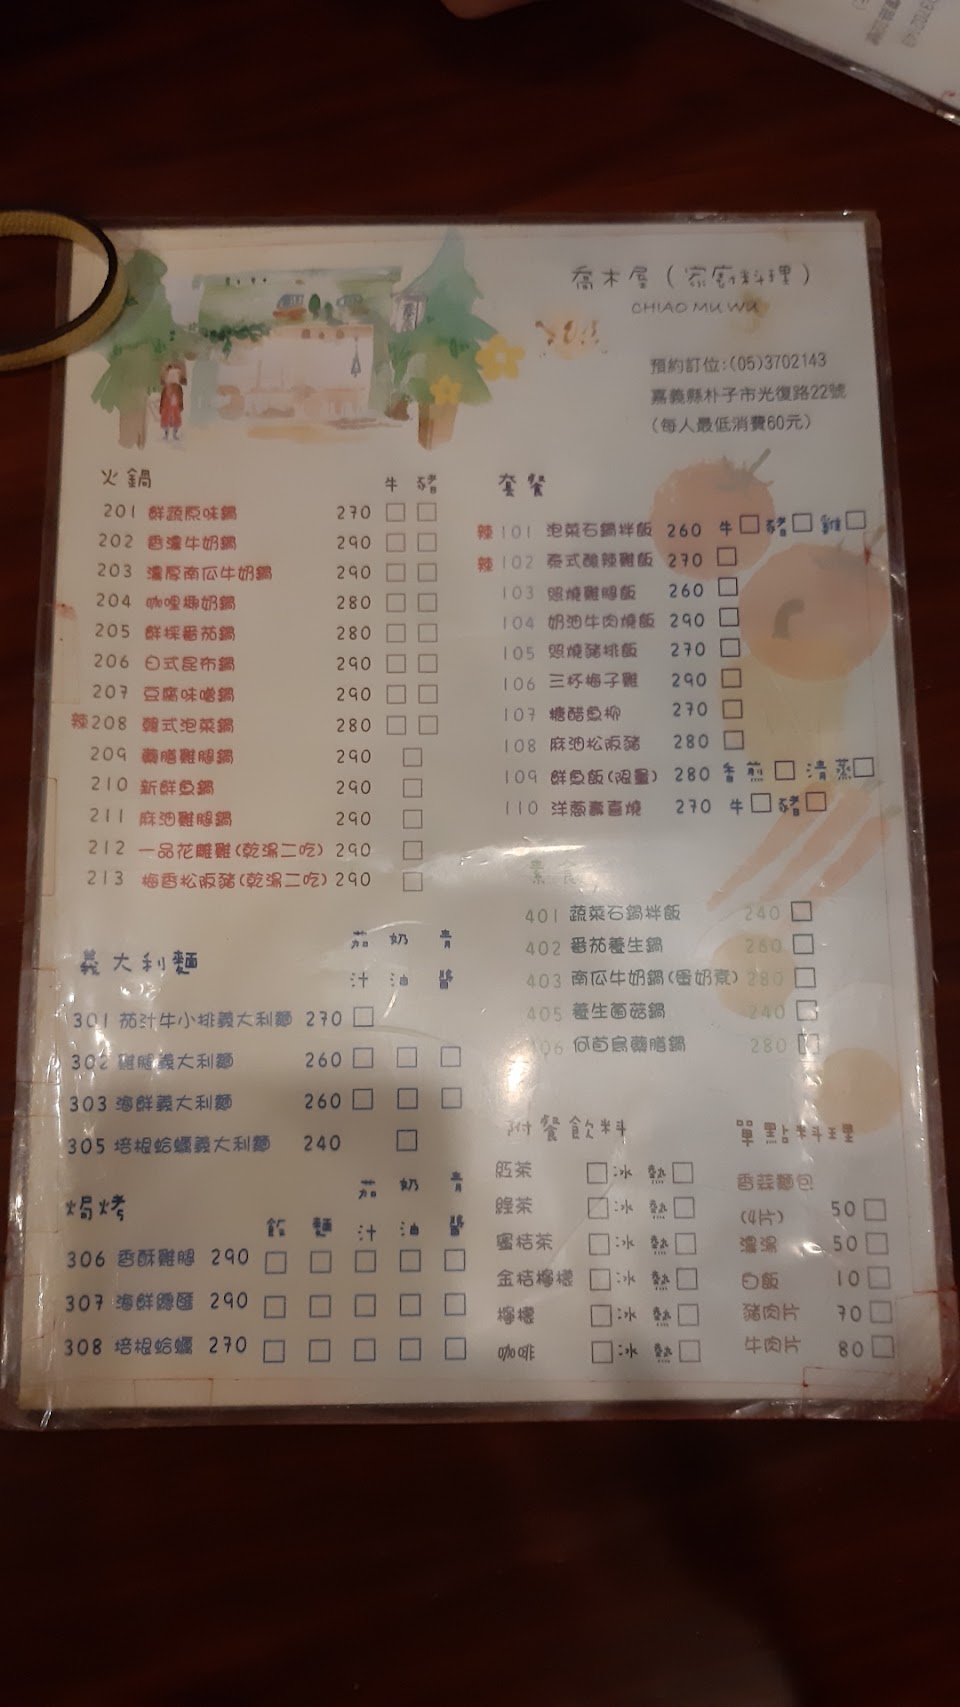 喬木屋(家廚料理)
CHIAO MU WU
預約訂位:(05)3702143
嘉義縣朴子市光復路22號
(每人最低消費60元)
火鍋 牛 豬
201 鮮蔬原味鍋 270
202 香濃牛奶鍋 290
203 濃厚南瓜牛奶鍋 290
204 咖哩椰奶鍋 280
205 鮮採番茄鍋 280
206 日式昆布鍋 290
207 豆腐味噌鍋 290
辣208 韓式泡菜鍋 280
209 藥膳雞腿鍋 290
210 新鮮魚鍋 290
211 麻油雞腿鍋 290
212 一品花雕雞(乾湯二吃) 290
213 梅香松阪豬(乾湯二吃) 290
義大利麵 茄汁 奶油 青醬
301 茄汁牛小排義大利麵 270
302 雞腿義大利麵 260
303 海鮮義大利麵 260
305 培根蛤蠣義大利麵 240
焗烤 飯 麵 茄汁 奶油 青醬
306 香酥雞腿 290
307 海鮮總匯 290
308 培根蛤蠣 270
套餐
辣 101 泡菜石鍋拌飯 260 牛 豬 雞
辣 102 泰式酸辣雞飯 270
103 照燒雞腿飯 260
104 奶油牛肉燒飯 290
105 照燒豬排飯 270
106 三杯梅子雞 290
107 糖醋魚柳 270
108 麻油松阪豬 280
109 鮮魚飯(限量) 280 香煎 清蒸
110 洋蔥壽喜燒 270 牛 豬
素食
401 蔬菜石鍋拌飯 240
402 番茄養生鍋 260
403 南瓜牛奶鍋(蛋奶素) 280
405 養生菌菇鍋 240
406 何首烏藥膳鍋 280
附餐飲料
紅茶 冰 熱
綠茶 冰 熱
蜜桔茶 冰 熱
金桔檸檬 冰 熱
檸檬 冰 熱
咖啡 冰 熱
單點料理
香蒜麵包
(4片) 50
濃湯 50
白飯 10
豬肉片 70
牛肉片 80